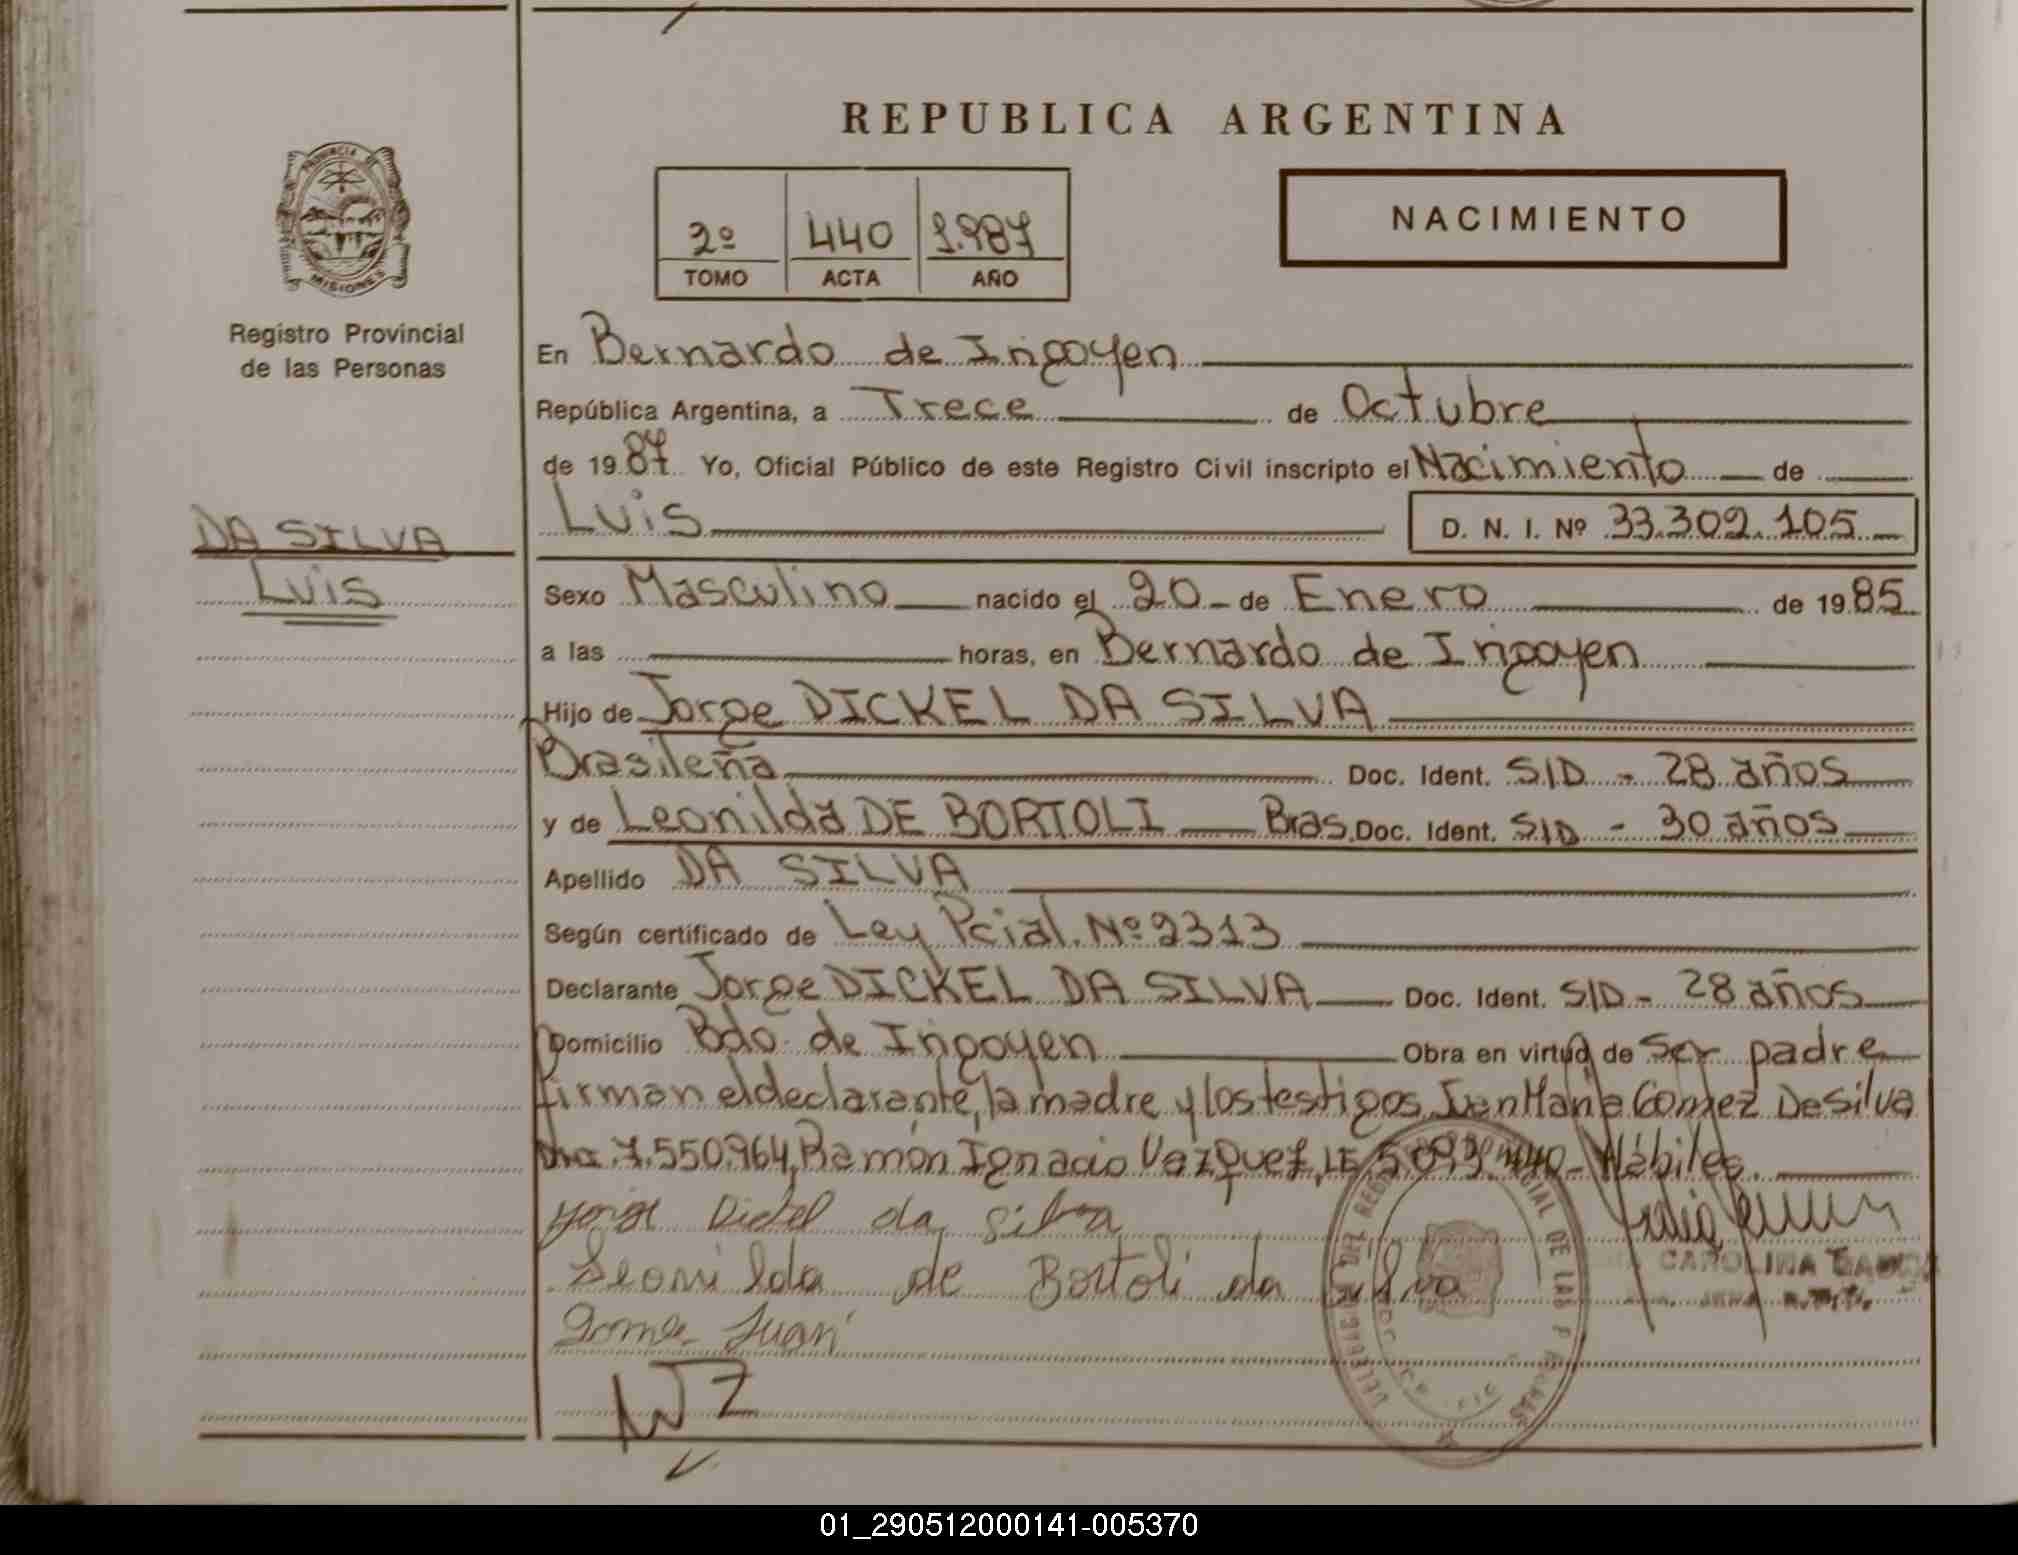 REPUBLICA ARGENTINA
PROVINCIA DE
MISIONES
Registro Provincial
de las Personas
2º 440 1.987
TOMO ACTA AÑO
NACIMIENTO
En Bernardo de Irigoyen
República Argentina, a Trece de Octubre
de 1987 Yo, Oficial Público de este Registro Civil inscripto el Nacimiento de
Luis D. N. I. Nº 33.302.105
DA SILVA
Luis
Sexo Masculino nacido el 20 de Enero de 1985
a las horas, en Bernardo de Irigoyen
Hijo de Jorge DICKEL DA SILVA
Brasileña Doc. Ident. S/D - 28 años
y de Leonilda DE BORTOLI Bras. Doc. Ident. S/D - 30 años
Apellido DA SILVA
Según certificado de Ley Pcial. Nº 2313
Declarante Jorge DICKEL DA SILVA Doc. Ident. S/D - 28 años
Domicilio Bdo. de Irigoyen Obra en virtud de ser padre
firman el declarante, la madre y los testigos, Maria Gomez De Silva
7.550.964, Ramón Ignacio Vazquez, LE Hábiles.
Jorge Dickel da Silva
Leonilda de Bortoli da Silva
Gomez Juan
CAROLINA
01_290512000141-005370